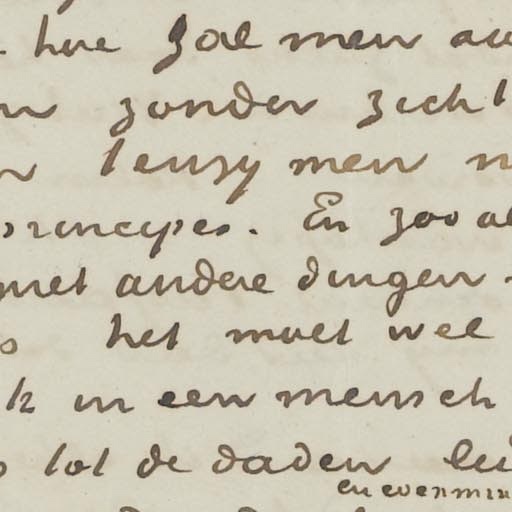 hoe zal men
zonder zich
tenzy men
principes. En zooal
met andere dingen
het moet wel
in een mensch
tot de daden
en evenmin